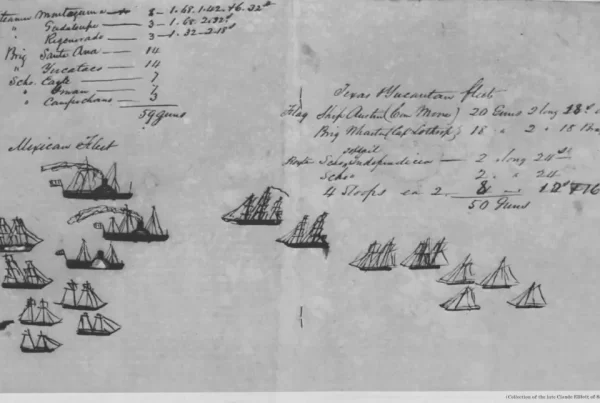 Steamer Montezuma — 8 – 1.68. 1.42. & 6. 32ds
" Guadaloupe — 3 – 1.68. 2.32d
" Regenerado — 3 – 1.32 – 2.18d
Brig Santa Ana — 14
" Yucataco — 14
Scho. Eagle — 7
" — 7
" Campechano — 3
59 Guns
Mexican Fleet
Texas & Yucatan fleet
Flag Ship Austin (Com Moore) 20 Guns 2 long 18d
Brig Wharton (Cap Lothrop) 18 " 2 " 18
Schos Independencia — 2 long 24
Scho 2 " 24
4 Sloops ea 2. 8 — 12 & 16
50 Guns
(Collection of the late Claude Elliott of S